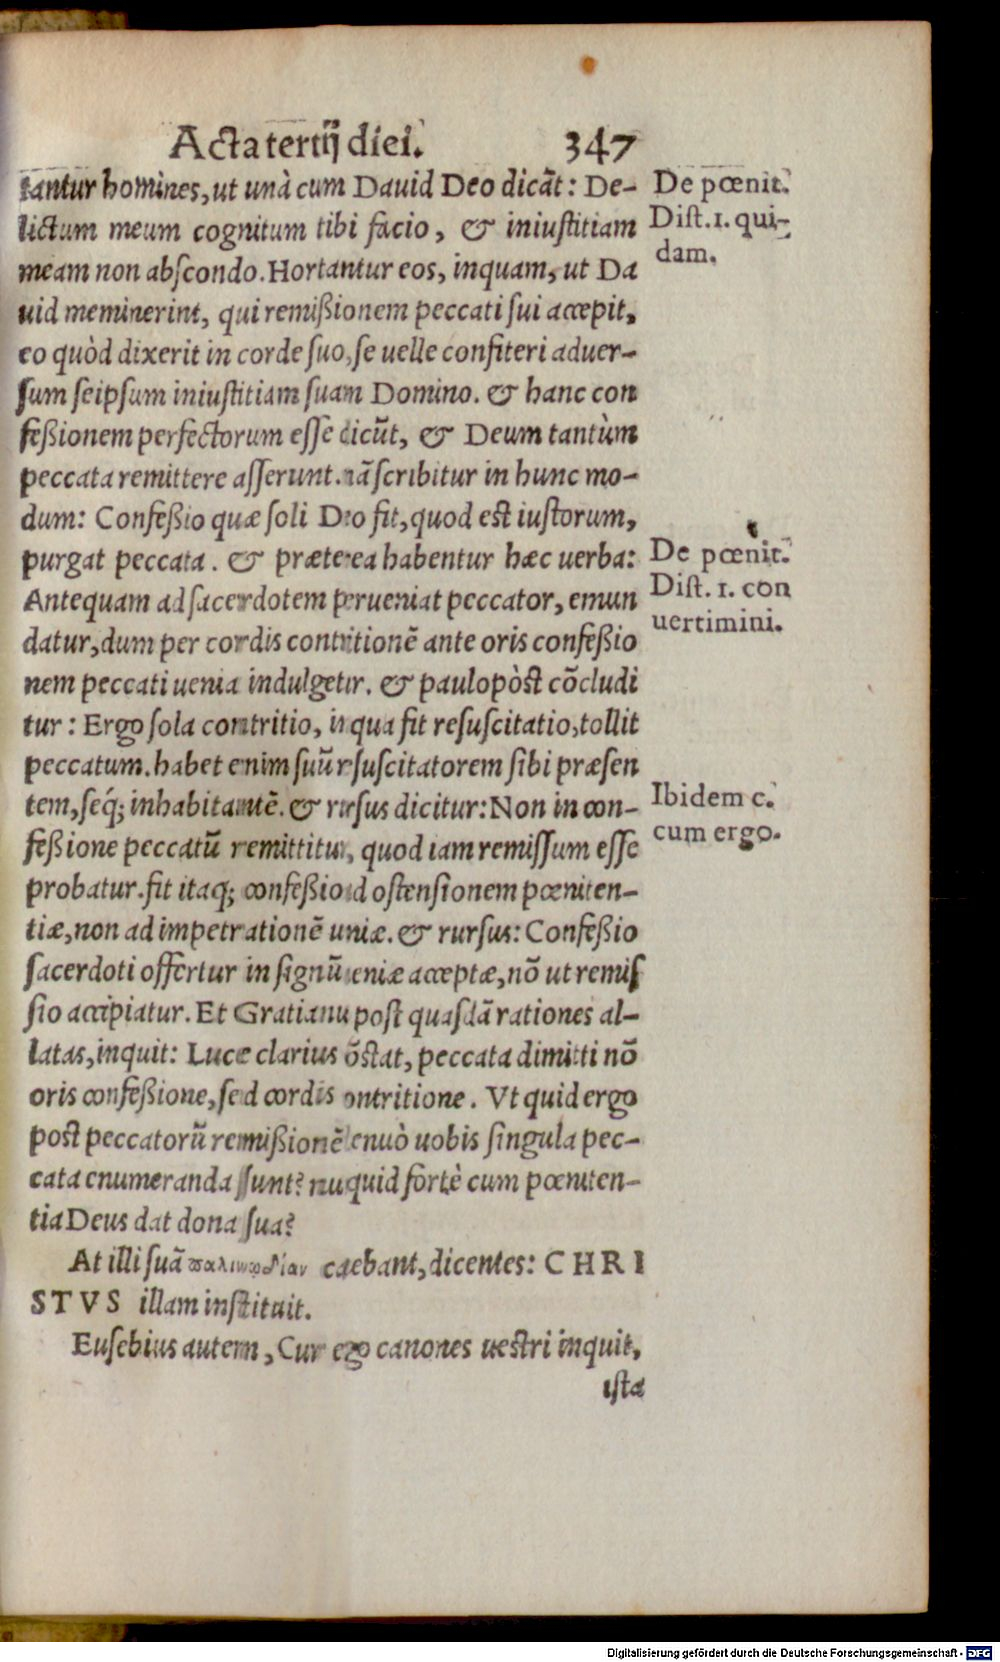 Acta tertij diei. 347
tantur homines, ut unà cum Dauid Deo dicāt: De-
lictum meum cognitum tibi facio, & iniustitiam
meam non abscondo. Hortantur eos, inquam, ut Da
uid meminerint, qui remißionem peccati sui accepit,
eo quòd dixerit in corde suo, se uelle confiteri aduer-
sum seipsum iniustitiam suam Domino. & hanc con
feßionem perfectorum esse dicūt, & Deum tantùm
peccata remittere asserunt. nā scribitur in hunc mo-
dum: Confeßio quæ soli Deo fit, quod est iustorum,
purgat peccata. & præterea habentur hæc uerba:
Antequam ad sacerdotem perueniat peccator, emun
datur, dum per cordis contritionē ante oris confeßio
nem peccati uenia indulgetur. & paulopòst cōcludi
tur: Ergo sola contritio, in qua fit resuscitatio, tollit
peccatum. habet enim suū resuscitatorem sibi præsen
tem, seq́; inhabitantē. & rursus dicitur: Non in con-
feßione peccatū remittitur, quod iam remissum esse
probatur. fit itaq; confeßio ad ostensionem pœniten-
tiæ, non ad impetrationē ueniæ. & rursus: Confeßio
sacerdoti offertur in signū ueniæ acceptæ, nō ut remis
sio accipiatur. Et Gratianus post quasdā rationes al-
latas, inquit: Luce clarius cōstat, peccata dimitti nō
oris confeßione, sed cordis contritione. Vt quid ergo
post peccatorū remißionē denuò uobis singula pec-
cata enumeranda sunt? nunquid fortè cum pœniten-
tia Deus dat dona sua?
At illi suā παλινῳδίαν canebant, dicentes: CHRI
STVS illam instituit.
Eusebius autem, Cur ergo canones uestri inquit,
ista
De pœnit.
Dist. 1. qui-
dam.
De pœnit.
Dist. 1. con
uertimini.
Ibidem c.
cum ergo.
Digitalisierung gefördert durch die Deutsche Forschungsgemeinschaft - DFG